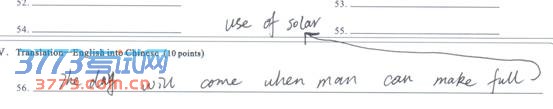 52.
53.
use of solar
54.
55.
V. Translation English into Chinese (10 points)
3773考试网
3773.com.cn
56. the day will come when man can make full